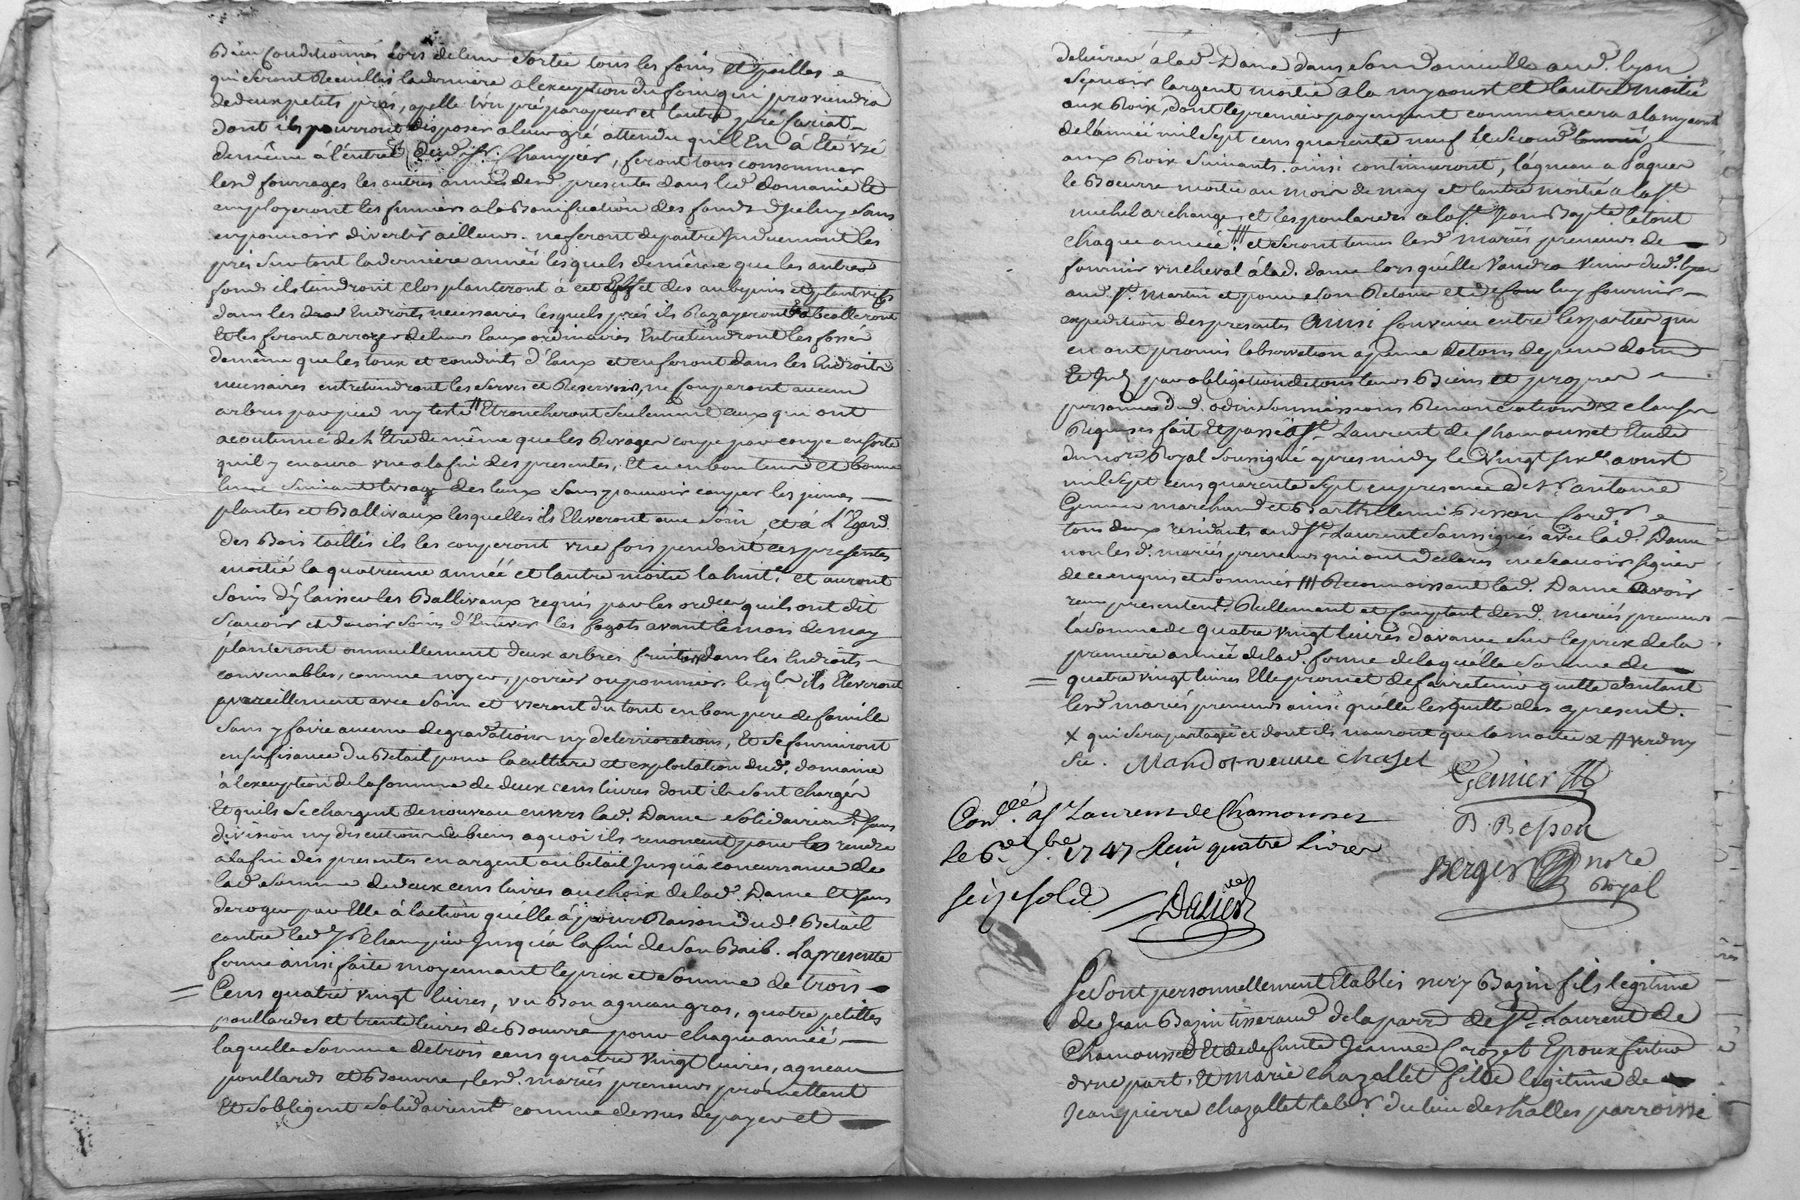 Bien Conditionnés lors de leur Sortie tous les foins et pailles
qui Seront Recueillis la derniere a lexeption du foin qui proviendra
de deux petits prés, apellé l'un pré parayeur et l'autre pré
dont ils pourront disposer a leur gré attendu qu'il En à Eté usé
de même à l'entrée dud. Sr. Champier, feront tous consommer
lesd. fourrages les autres années des presentes dans led. domaine Et
employeront les fumiers a la Bonification des fonds d'Iceluy Sans
en pouvoir divertir ailleurs. ne feront depaitre Induement les
prés Surtout la derniere année lesquels de même que les autres
fonds ils tiendront clos planteront à cet Effet des aubepins et plantiers
dans les Endroits necessaires lesquels prés ils
Et les feront arroser de leurs Eaux ordinaires Entretiendront les fossés
de même que les tours et conduits d'Eaux et en feront dans les Endroits
necessaires entretiendront les Serves et Reservoirs, ne Couperont aucun
arbres par pied ny teste # Etroncheront Seulement ceux qui ont
acoutumé de l'Etre de même que les Rivages coupe par coupe en sorte
qu'il y en aura une a la fin des presentes, Et en bon tems et bonne
lune Suivant l'usage des lieux Sans pouvoir couper les jeunes
plantes et Ballivaux lesquelles ils Eleveront avec Soin, et à L'Egard
des Bois taillis ils les couperont une fois pendant ces presentes
moitié la quatrieme année et l'autre moitié la huite. et auront
Soins d'y laisser les Ballivaux requis par les ordces qu'ils ont dit
Scavoir et d'avoir Soins d'Enlever les fagots avant le mois de may
planteront annuellement deux arbres fruitiers dans les Endroits
convenables, comme noyer, poirier ou pommier, lesqls ils Eleveront
pareillement avec Soin et useront du tout en bon pere de famille
Sans y faire aucune degradation ny deteriorations, Et Se fourniront
en Sufisance du Betail pour la culture et exploitation dud. domaine
à lexeption de la Somme de deux cens livres dont ils Sont chargés
Et quils Se chargent de nouveau envers lad. Dame Solidairemt. Sans
division ny discution de biens a quoi ils renoncent pour les rendre
a la fin des presentes en argent ou betail Jusqu'a concurrance de
lad. Somme de deux cens livres au choix de lad. Dame Et Sans
deroger par Elle à l'action qu'elle à pour Raison dud. Betail
contre led. Sr. Champier Jusqu'à la fin de Son Bail. La presente
ferme ainsi faite moyennant le prix et Somme de trois
Cens quatre vingt livres, un Bon agneau gras, quatre petittes
poullardes et trente livres de Beurre pour chaque année
laquelle Somme de trois cens quatre vingt livres, agneau
poullards et Beurre, lesd. mariés preneurs promettent
Et S'obligent Solidairemt. comme dessus de payer et
delivrer à lad. Dame dans Son domicille aud. lyon
Scavoir l'argent moitié a la my aoust et l'autre moitié
aux Roix, dont le premier payement commencera a la my aoust
de l'année mil Sept cens quarente neuf le Second
aux Roix Suivants. ainsi continueront, l'agneau a Paques
le Beurre moitié au mois de may et l'autre moitié a la St.
michel archange, et les poulardes a la St. Jean Bapte. le tout
chaque année # et Seront tenus lesd. mariés preneurs de
fournir un cheval à lad. dame lorsqu'elle Vaudra Venir dud. lyon
aud. St. Martin et pour Son Retour et de luy fournir
expedition des presentes Ainsi Convenu entre les parties qui
en ont promis l'observation a peine de tous depens dom.
Et Int. par obligation de tous leurs Biens et propres
personnes dud. odin Soumissions Renonciations & clauses
Requises fait Et passé a St. Laurent de Chamousset Etude
du nore. Royal Soussigné apres midy le Vingt Sixe. aoust
mil Sept cens quarente Sept en presence de Sr. antoine
Genier marchand et Barthelemi Besson Cordr.
tous deux residants aud. St. Laurent Soussignés avec lad. Dame
non lesd. mariés preneurs qui ont declaré ne Scavoir Signer
de ce enquis et Sommés # Reconnoissant lad. Dame avoir
reçu presentemt. Reellement et Comptant desd. mariés preneurs
la Somme de quatre vingt livres d'avance Sur le prix de la
premiere année de lad. ferme de laquelle Somme de
quatre vingt livres Elle promet de faire tenir quitte d'autant
lesd. mariés preneurs ainsi qu'elle les quitte des apresent.
x qui Sera partagée et dont ils n'auront que la moitié #
Mandot veuve Chaset
Genier
B. Besson
Berger nore
Royal
Conlé. a St Laurent de Chamousset
le 6e 7bre 1747 Reçu quatre livres
Seize Sols
Se Sont personnellement Etablis Bazin fils legitime
de Jean Bazin tisserand de la parr. de St. Laurent de
Chamousset Et de defunte Jeanne Crozet Epoux futur
d'une part, Et marie Chazallet fille legitime de
Jean pierre Chazallet labr. du lieu des halles parroisse